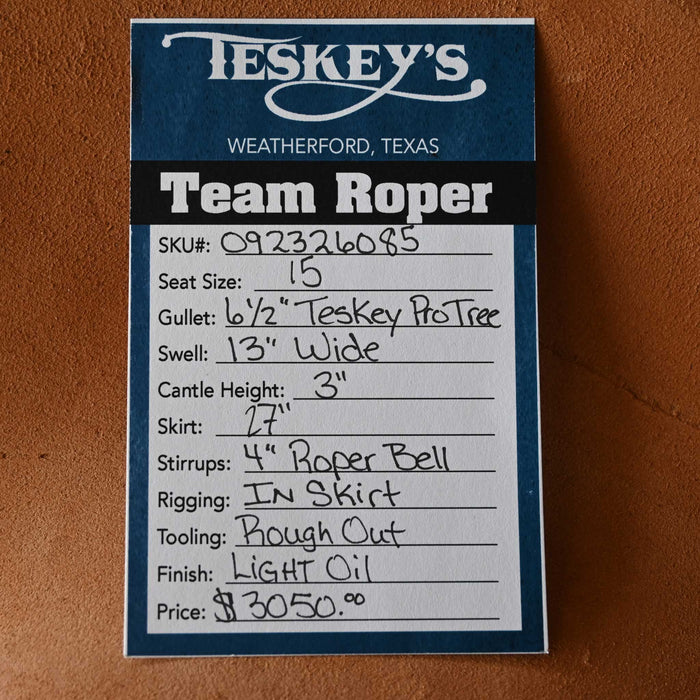 TESKEY'S
WEATHERFORD, TEXAS
Team Roper
SKU#: 092326085
Seat Size: 15
Gullet: 6 1/2" Teskey Pro Tree
Swell: 13" Wide
Cantle Height: 3"
Skirt: 27"
Stirrups: 4" Roper Bell
Rigging: IN Skirt
Tooling: Rough Out
Finish: LiGHT Oil
Price: $3050.00